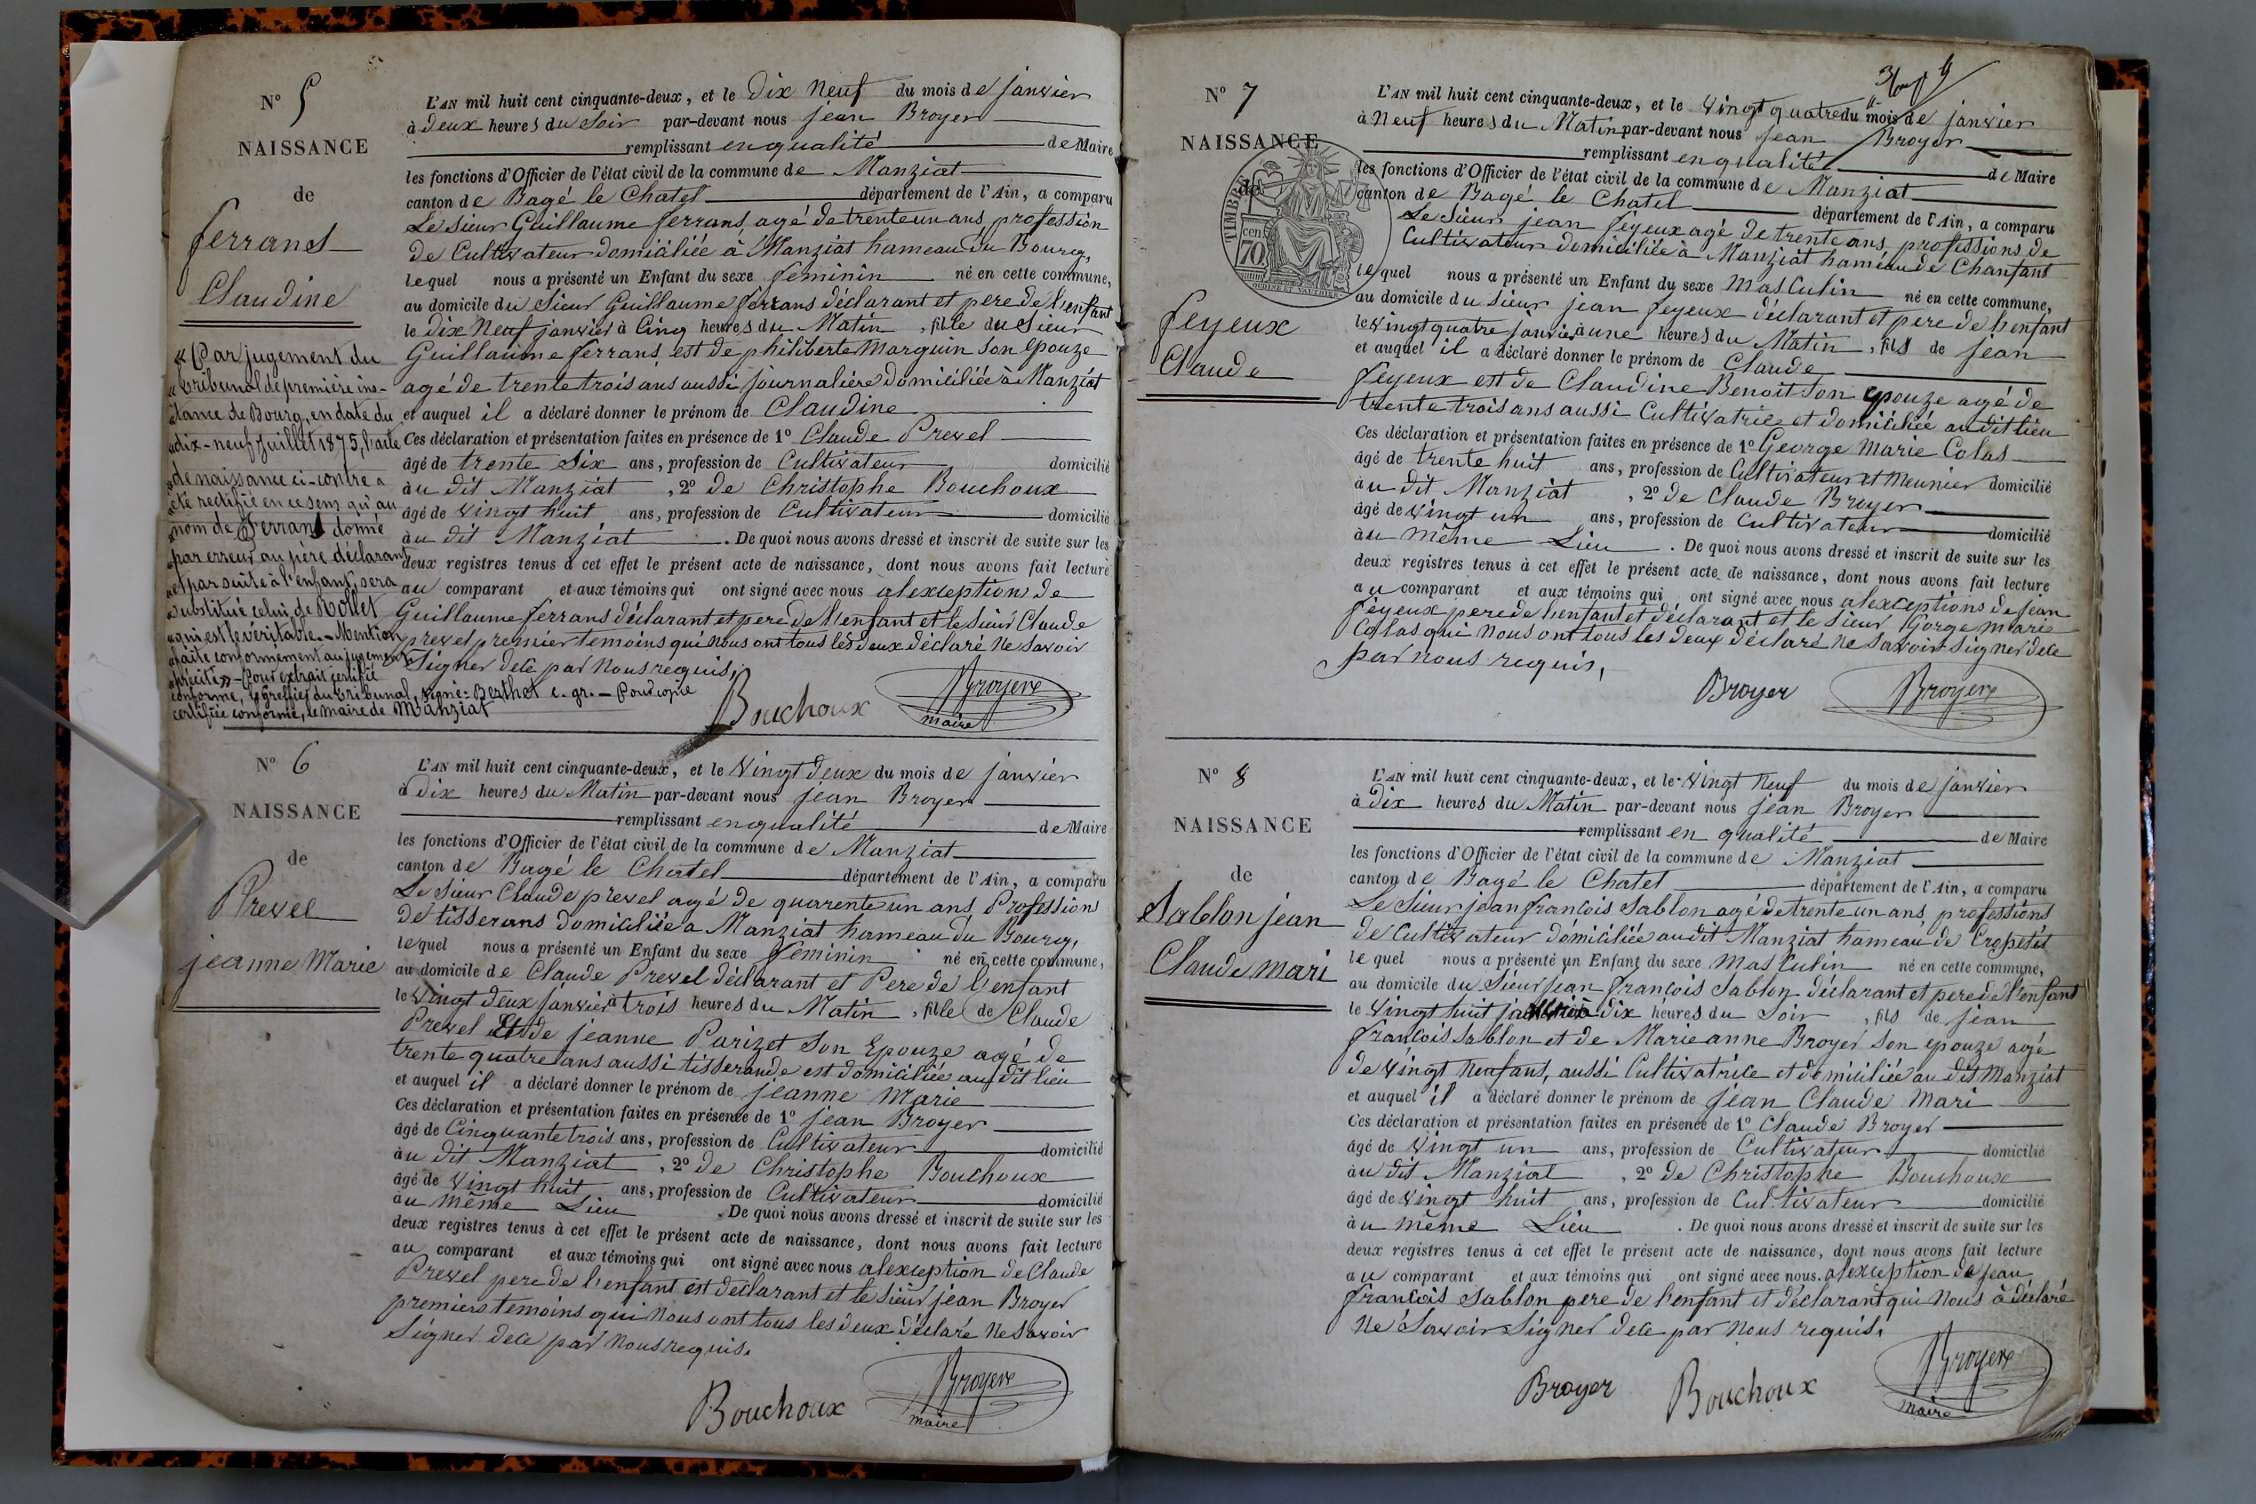 N° 5
NAISSANCE
de
ferrans
Claudine
« Par jugement du
« tribunal de première ins-
« tance de Bourg, en date du
« dix-neuf Juillet 1875, l'acte
« de naissance ci-contre a
« été rectifié en ce sens qu'au
« nom de Ferrans donné
« par erreur au père déclarant
« et par suite à l'enfant, sera
« substitué celui de Rollet
« qui est le véritable. - Mention
« faite conformément au jugement
« précité » - Pour extrait certifié
conforme, le greffier du tribunal, signé : Berthet c. gr. - Pour copie
certifiée conforme, le maire de Manziat
L'AN mil huit cent cinquante-deux, et le dix neuf du mois de janvier
à deux heures du Soir par-devant nous jean Broyer
remplissant en qualité de Maire
les fonctions d'Officier de l'état civil de la commune de Manziat
canton de Bagé le Chatel département de l'Ain, a comparu
Le Sieur Guillaume ferrans agé de trente un ans, profession
de Cultivateur domiciliée à Manziat hameau du Bourg,
lequel nous a présenté un Enfant du sexe feminin né en cette commune,
au domicile du Sieur Guillaume ferrans déclarant et pere de l'enfant
le dix Neuf janvier à Cinq heures du Matin, fille du Sieur
Guillaume ferrans est de philiberte Marguin son epouze
agé de trente trois ans aussi journaliere domiciliée à Manziat
et auquel il a déclaré donner le prénom de Claudine
Ces déclaration et présentation faites en présence de 1° Claude Prevel
âgé de trente Six ans, profession de Cultivateur domicilié
à u dit Manziat, 2° de Christophe Bouchoux
âgé de vingt huit ans, profession de Cultivateur domicilié
à u dit Manziat. De quoi nous avons dressé et inscrit de suite sur les
deux registres tenus à cet effet le présent acte de naissance, dont nous avons fait lecture
au comparant et aux témoins qui ont signé avec nous alexception de
Guillaume ferrans déclarant et pere de l'enfant et le sieur Claude
prevel premier temoins qui nous ont tous les deux déclaré ne savoir
Signer dece par nous requis,
Bouchoux Broyer
maire
N° 6
NAISSANCE
de
Prevel
jeanne Marie
L'AN mil huit cent cinquante-deux, et le Vingt deux du mois de janvier
à dix heures du Matin par-devant nous jean Broyer
remplissant en qualité de Maire
les fonctions d'Officier de l'état civil de la commune de Manziat
canton de Bagé le Chatel département de l'Ain, a comparu
Le Sieur Claude prevel agé de quarente un ans Professions
de tisserans domiciliée a Manziat hameau du Bourg,
lequel nous a présenté un Enfant du sexe feminin né en cette commune,
au domicile de Claude Prevel déclarant et Pere de l'enfant
le Vingt deux janvier à trois heures du Matin, fille de Claude
Prevel Et de jeanne Parizet son Epouze agé de
trente quatre ans aussi tisserande est domiciliée au dit lieu
et auquel il a déclaré donner le prénom de jeanne Marie
Ces déclaration et présentation faites en présence de 1° jean Broyer
âgé de Cinquante trois ans, profession de Cultivateur domicilié
à u dit Manziat, 2° de Christophe Bouchoux
âgé de Vingt huit ans, profession de Cultivateur domicilié
à u même Lieu. De quoi nous avons dressé et inscrit de suite sur les
deux registres tenus à cet effet le présent acte de naissance, dont nous avons fait lecture
au comparant et aux témoins qui ont signé avec nous alexception de Claude
Prevel pere de l'enfant est declarant et le Sieur jean Broyer
premiers temoins qui Nous ont tous les deux déclaré Ne Savoir
Signer dece par Nous requis.
Bouchoux Broyer
maire
N° 7
NAISSANCE
de
TIMBRE
cen
70
feyeux
Claude
L'AN mil huit cent cinquante-deux, et le Vingt quatre du mois de janvier
à Neuf heures du Matin par-devant nous jean Broyer
remplissant en qualité de Maire
les fonctions d'Officier de l'état civil de la commune de Manziat
canton de Bagé le Chatel département de l'Ain, a comparu
Le Sieur jean feyeux agé de trente ans professions de
Cultivateur domiciliée à Manziat haméau de Chanfant
lequel nous a présenté un Enfant du sexe Masculin né en cette commune,
au domicile du sieur jean feyeux déclarant et pere de l'enfant
le Vingt quatre janvier à une heures du Matin, fils de jean
et auquel il a déclaré donner le prénom de Claude
feyeux est de Claudine Benoit son epouze agé de
trente trois ans aussi Cultivatrice et domiciliée au dit lieu
Ces déclaration et présentation faites en présence de 1° George Marie Colas
âgé de trente huit ans, profession de Cultivateur et Meunier domicilié
à u dit Manziat, 2° de Claude Broyer
âgé de vingt un ans, profession de Cultivateur domicilié
à u même Lieu. De quoi nous avons dressé et inscrit de suite sur les
deux registres tenus à cet effet le présent acte de naissance, dont nous avons fait lecture
au comparant et aux témoins qui ont signé avec nous alexceptions de jean
feyeux pere de l'enfant et déclarant et le Sieur Gorge Marie
Colas qui Nous ont tous les deux déclaré ne savoir Signer dece
par nous requis,
Broyer Broyer
N° 8
NAISSANCE
de
Sablon jean
Claude mari
L'AN mil huit cent cinquante-deux, et le Vingt Neuf du mois de janvier
à Dix heures du Matin par-devant nous jean Broyer
remplissant en qualité de Maire
les fonctions d'Officier de l'état civil de la commune de Manziat
canton de Bagé le Chatel département de l'Ain, a comparu
Le Sieur jean francois Sablon agé de trente un ans, professions
de Cultivateur domiciliée au dit Manziat hameau de Cropetet
lequel nous a présenté un Enfant du sexe Masculin né en cette commune,
au domicile du Sieur jean francois Sablon déclarant et pere de l'enfant
le Vingt huit janvier à dix heures du Soir, fils de jean
francois Sablon et de Marie anne Broyer son epouze agé
de Vingt Neuf ans, aussi Cultivatrice et domiciliée au dit Manziat
et auquel il a déclaré donner le prénom de jean Claude Mari
Ces déclaration et présentation faites en présence de 1° Claude Broyer
âgé de vingt un ans, profession de Cultivateur domicilié
à u dit Manziat, 2° de Christophe Bouchoux
âgé de Vingt huit ans, profession de Cultivateur domicilié
à u même Lieu. De quoi nous avons dressé et inscrit de suite sur les
deux registres tenus à cet effet le présent acte de naissance, dont nous avons fait lecture
au comparant et aux témoins qui ont signé avec nous alexception de jean
francois Sablon pere de l'enfant et déclarant qui Nous à déclaré
Ne Savoir Signer dece par Nous requis.
Broyer Bouchoux Broyer
maire